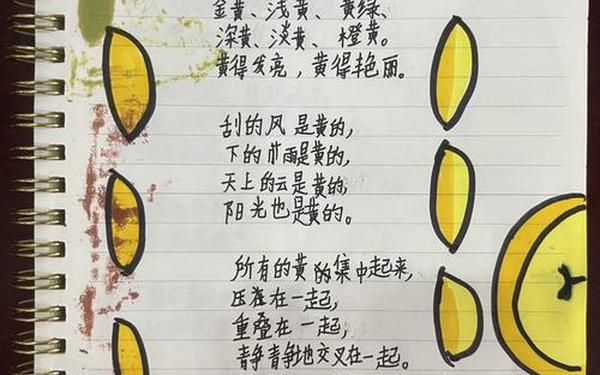 金黄、浅黄、黄绿、
深黄、淡黄、橙黄。
黄得发亮，黄得艳丽。
刮的风是黄的，
下的雨是黄的，
天上的云是黄的，
阳光也是黄的。
所有的黄的集中起来，
压在在一起，
重叠在一起，
静静地交叉在一起。